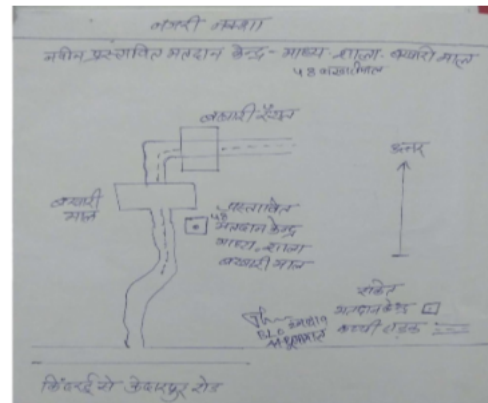 नजरी नक्शा
नवीन प्रस्तावित मतदान केन्द्र - माध्य. शाला - बखारी माल
58 बखारीमाल
बखारी रैयत
उत्तर
बखारी
माल
प्रस्तावित
58
मतदान केन्द्र
माध्य. शाला
बखारी माल
संकेत
मतदान केन्द्र
कच्ची सड़क
BLO
रोड